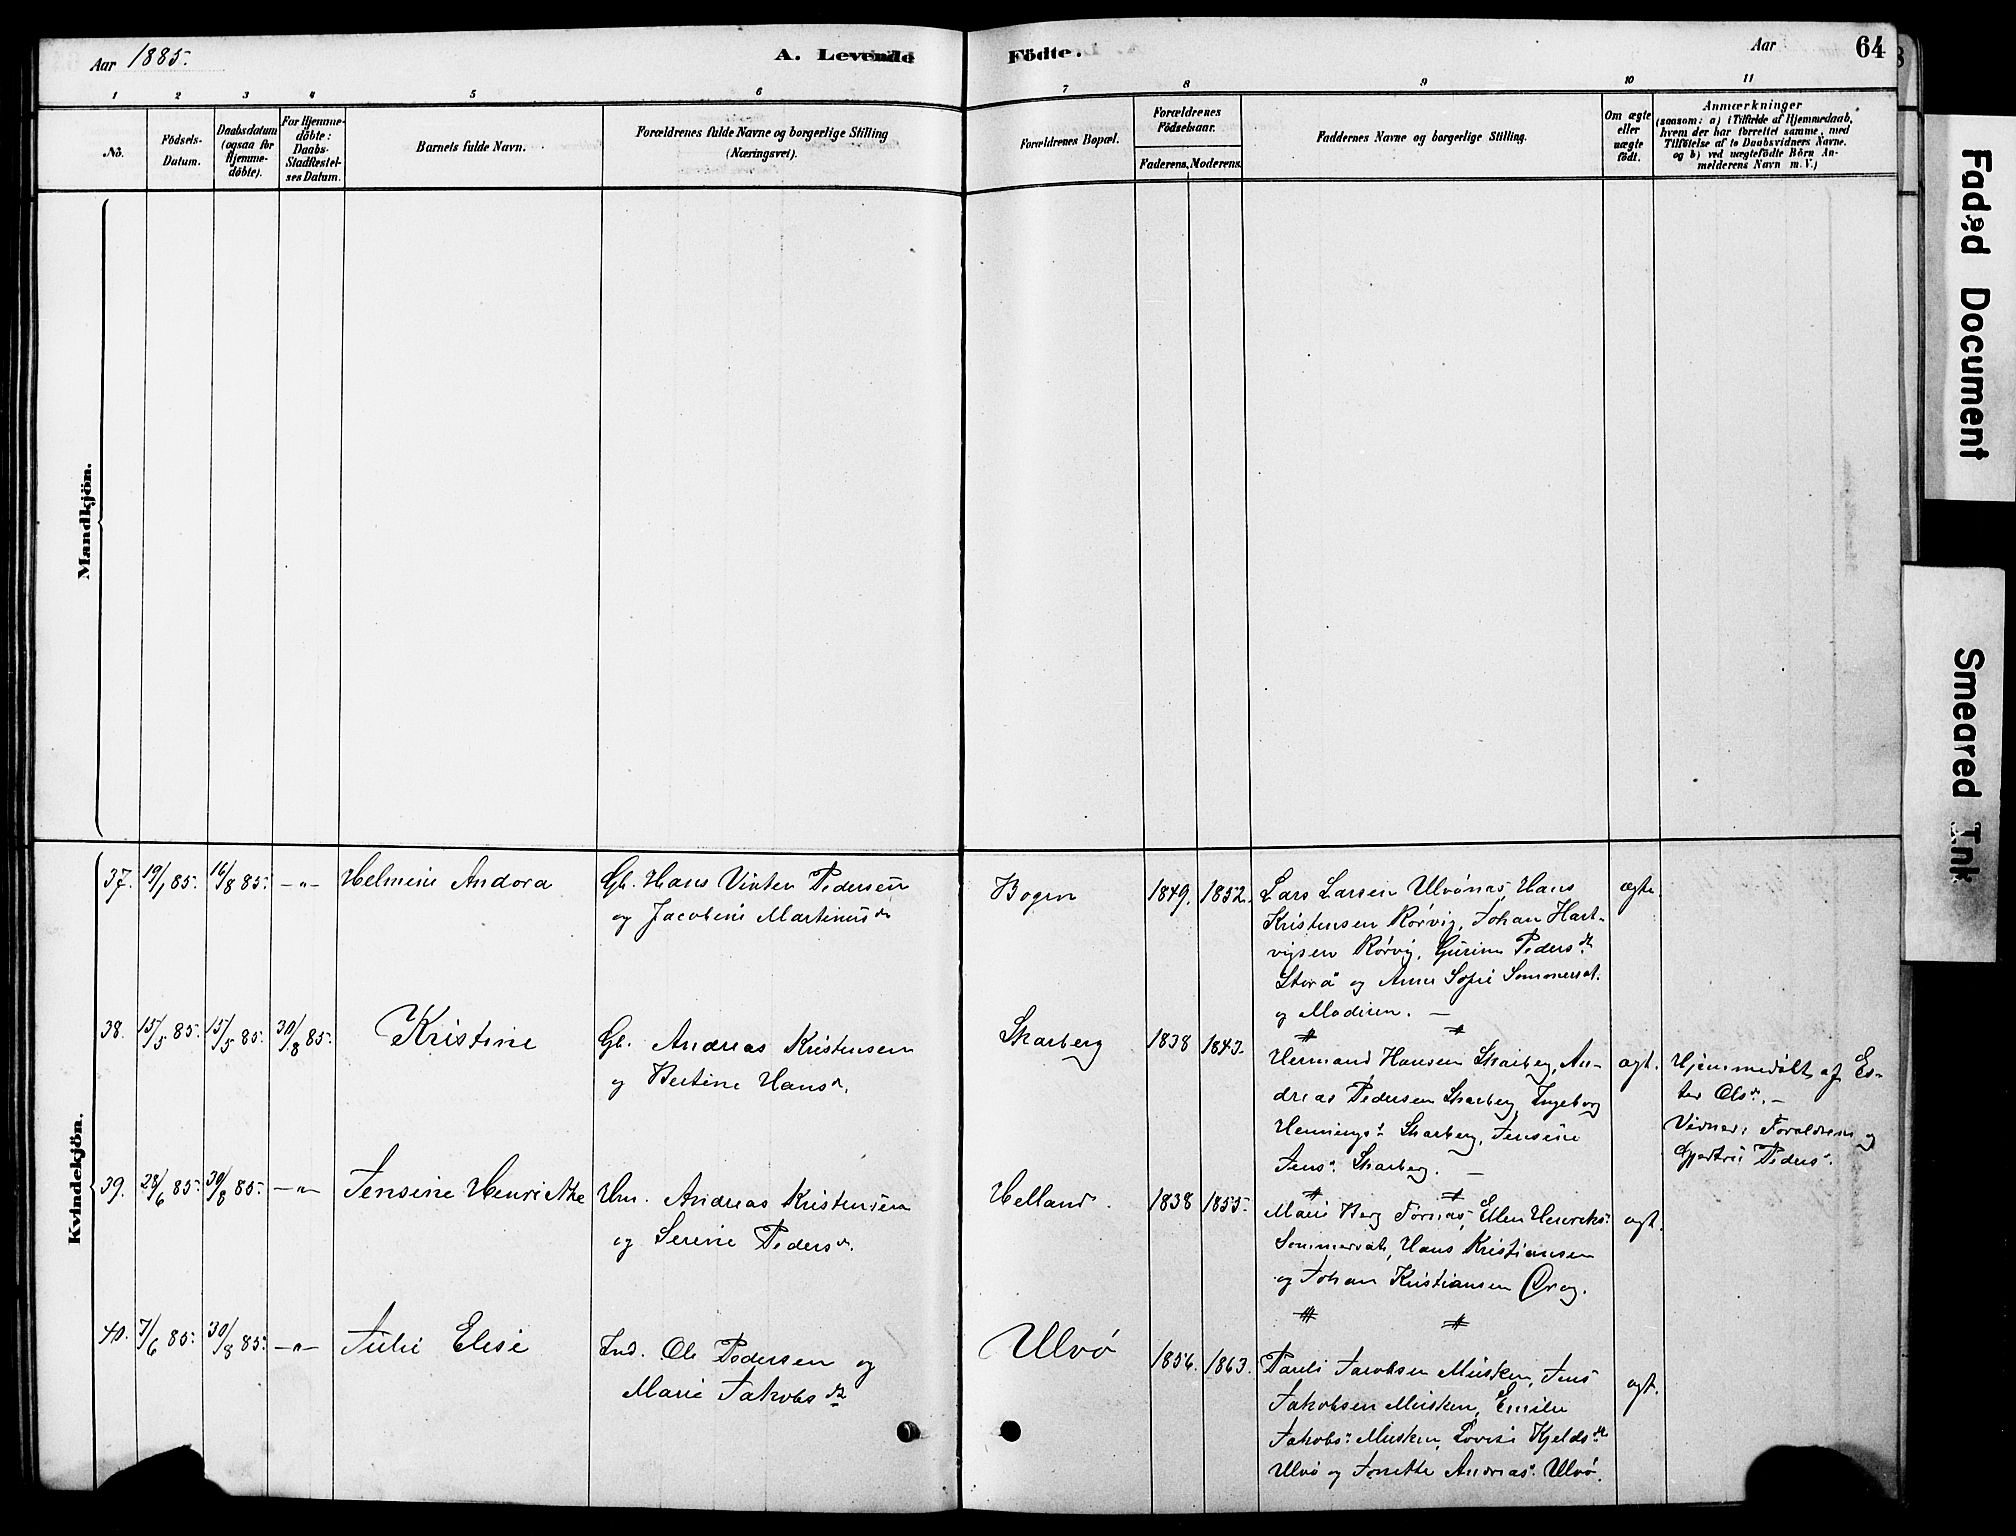 Aar 1885.
A. Levende
Födte.
Aar
64
1 2 3 4 5 6 7 8 9 10 11
No.
Födsels-
Datum.
Daabsdatum
(ogsaa for
Hjemme-
döbte).
For Hjemme-
döbte:
Daabs-
Stadfæstel-
ses Datum.
Barnets fulde Navn.
Forældrenes fulde Navne og borgerlige Stilling
(Næringsvei).
Forældrenes Bopæl.
Forældrenes
Födselsaar.
Faderens. Moderens.
Faddernes Navne og borgerlige Stilling.
Om ægte
eller
uægte
födt.
Anmærkninger
(saasom: a) i Tilfælde af Hjemmedaab,
hvem der har forrettet samme, med
Tilföielse af to Daabsvidners Navne.
og b) ved uægtefödte Börn An-
melderens Navn m. V.)
Mandkjön.
Kvindekjön.
37. 19/1 85. 16/8 85. -"- Helmine Andora
Gb. Hans Vinter Pedersen
og Jacobine Martinusdr
Bogen
1849. 1852.
Lars Larsen Ulvönæs, Hans
Kristensen Rörvig, Johan Hart-
vigsen Rörvig, Gurine Pedersdtr
Storå og Anna Sofie Sommerset.
og Moderen. —
ægte.
38. 15/5 85. 15/5 85. 30/8 85. Kristine
Gb. Andreas Kristensen
og Bertine Hansdr.
Skarberg
1838 1843.
Hermand Hansen Skarberg, An-
dreas Pedersen Skarberg, Ingeborg
Hennings. Skarberg, Jensine
Jens. Skarberg. —
ægt.
Hjemmedöbt af Es-
ter Olsdr. —
Vidner: Forældrene og
Gjertrü Peders.
39. 28/6 85. 30/8 85. -"- Jensine Henrikke
Hm. Andreas Kristensen
og Serine Pedersdr.
Helland.
1838 1855.
Marie Berg Fornæs, Ellen Henriks.
Sommersæt, Hans Kristiansen
og Johan Kristiansen Drag.
ægt.
40. 7/6 85. 30/8 85. -"- Julie Elise
Ind. Ole Pedersen og
Marie Jakobsdtr
Ulvö
1856. 1863.
Pauli Jacobsen Musken, Jens
Jakobsen Musken, Emilie
Jakobs. Musken, Lovise Kjeldsdtr
Ulvö og Jonette Andreas. Ulvö.
ægt.
Faded Document
Smeared Ink